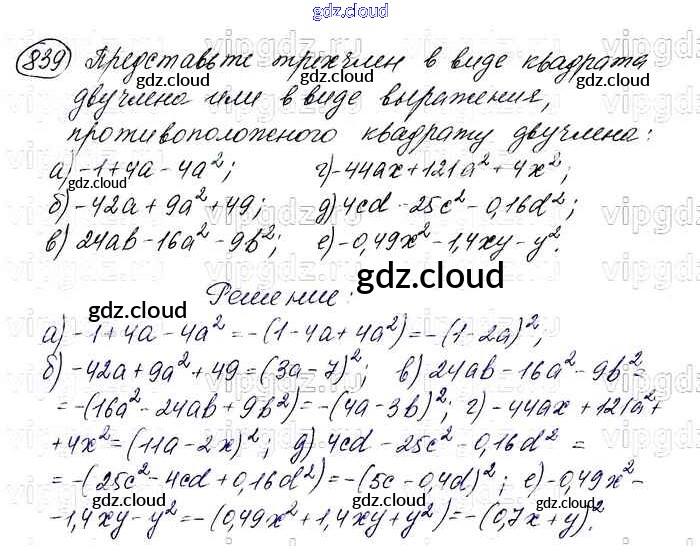 gdz.cloud
839 Представьте трехчлен в виде квадрата
двучлена или в виде выражения,
противоположного квадрату двучлена:
а) -1+4a-4a²; г) -44ax+121a²+4x²;
б) -42a+9a²+49; д) 4cd-25c²-0,16d²;
в) 24ab-16a²-9b²; е) -0,49x²-1,4xy-y².
Решение:
а) -1+4a-4a²=-(1-4a+4a²)=-(1-2a)²;
б) -42a+9a²+49=(3a-7)²; в) 24ab-16a²-9b²=
=-(16a²-24ab+9b²)=-(4a-3b)²; г) -44ax+121a²+
+4x²=(11a-2x)²; д) 4cd-25c²-0,16d²=
=-(25c²-4cd+0,16d²)=-(5c-0,4d)²; е) -0,49x²-
-1,4xy-y²=-(0,49x²+1,4xy+y²)=-(0,7x+y)².